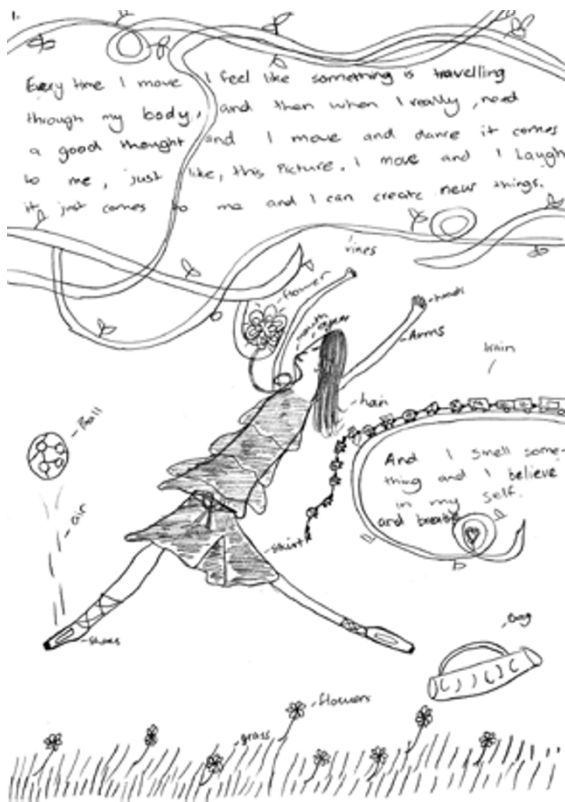 1.
Every time I move I feel like something is travelling
through my body, and then when I really, need
a good thought and I move and dance it comes
to me, just like, this Picture. I move and I laugh
it just comes to me and I can create new things.
vines
flower
hands
mouth
Arms
train
hair
Ball
And I smell some-
thing and I believe
in my self.
and breathe
air
skirt
shoes
Bag
flowers
grass